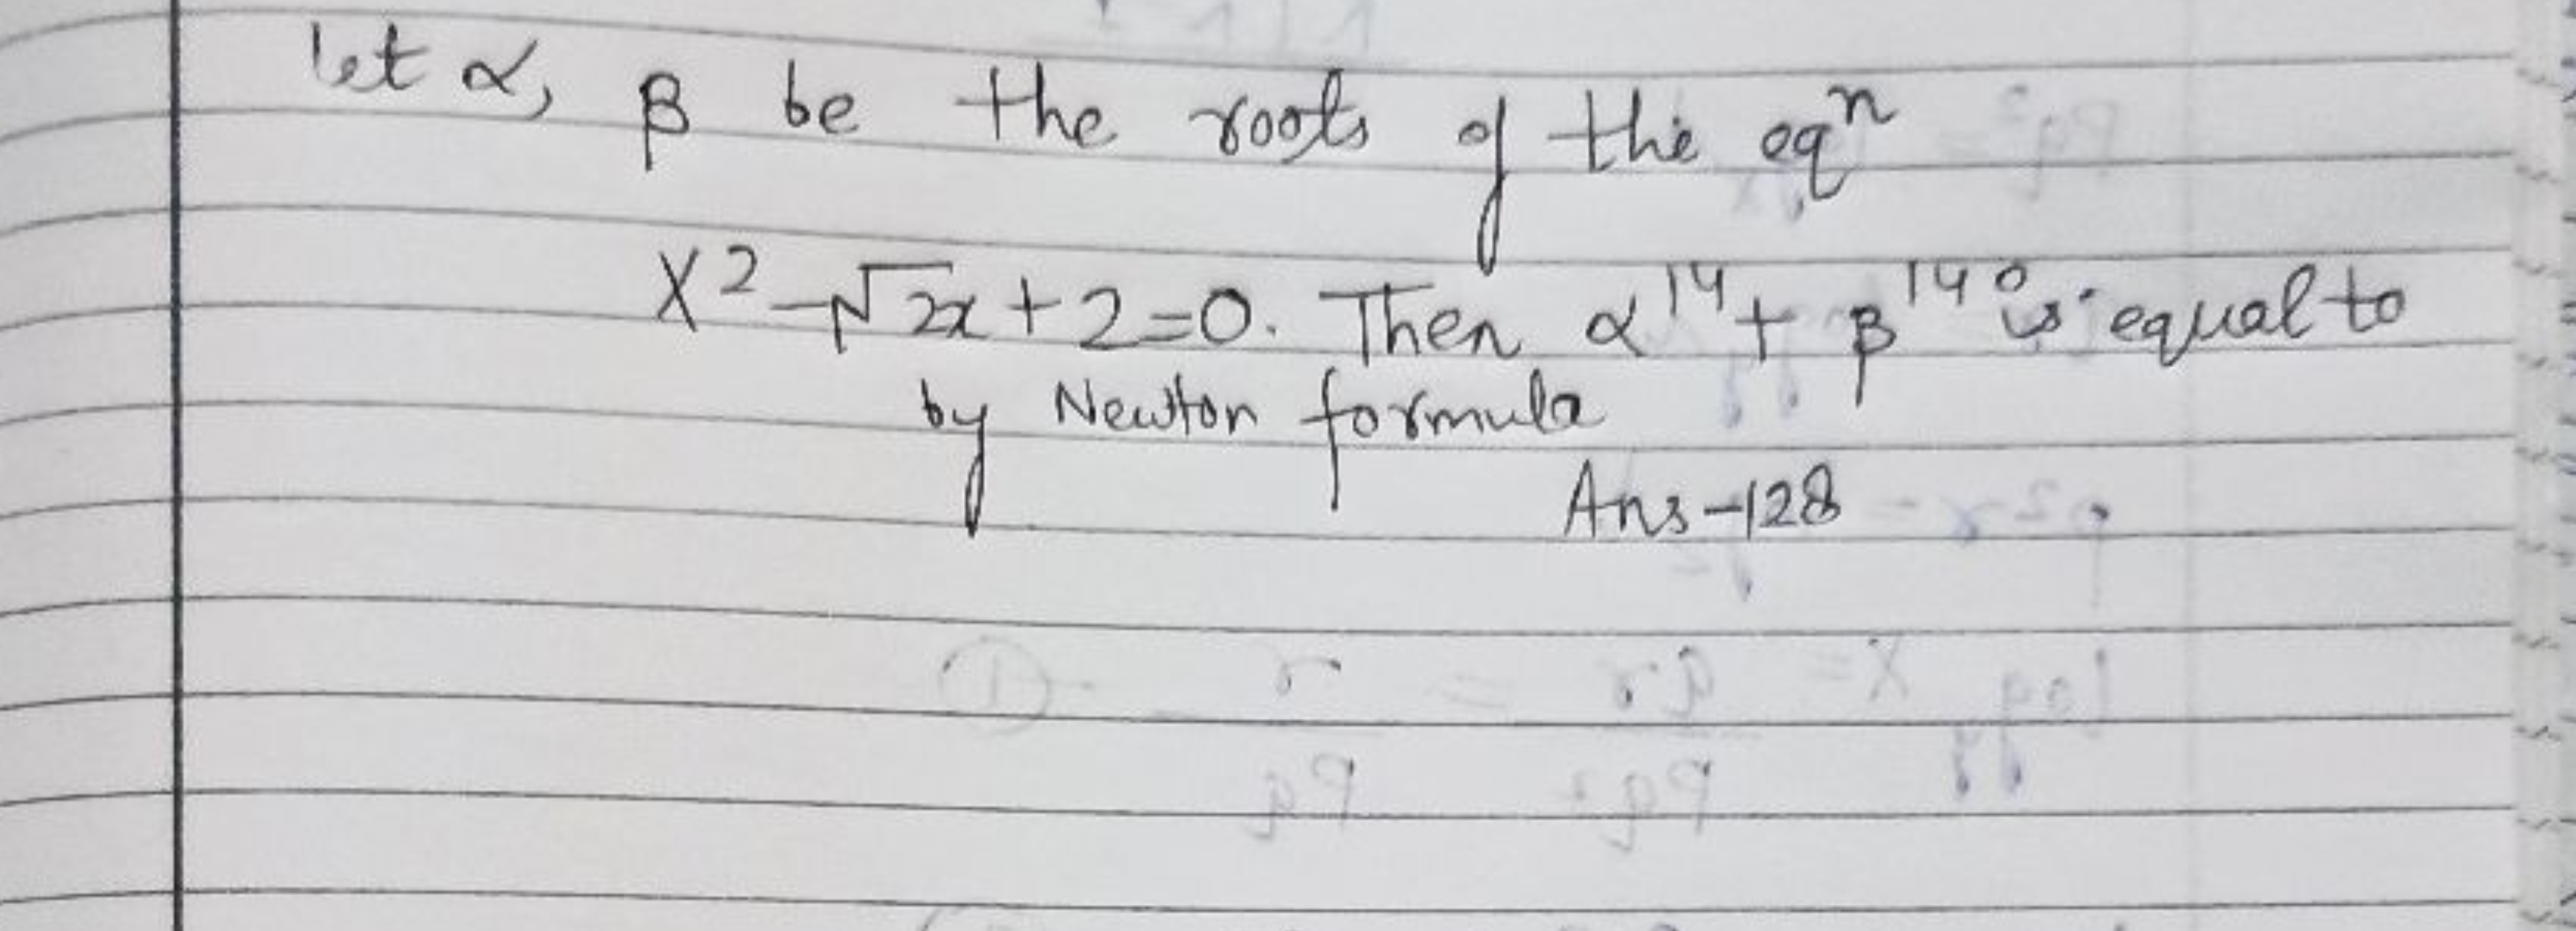 let α, β be the roots of the eqⁿ
x² - √2x + 2 = 0. Then α¹⁴ + β¹⁴ is equal to
by Newton formula
Ans -128